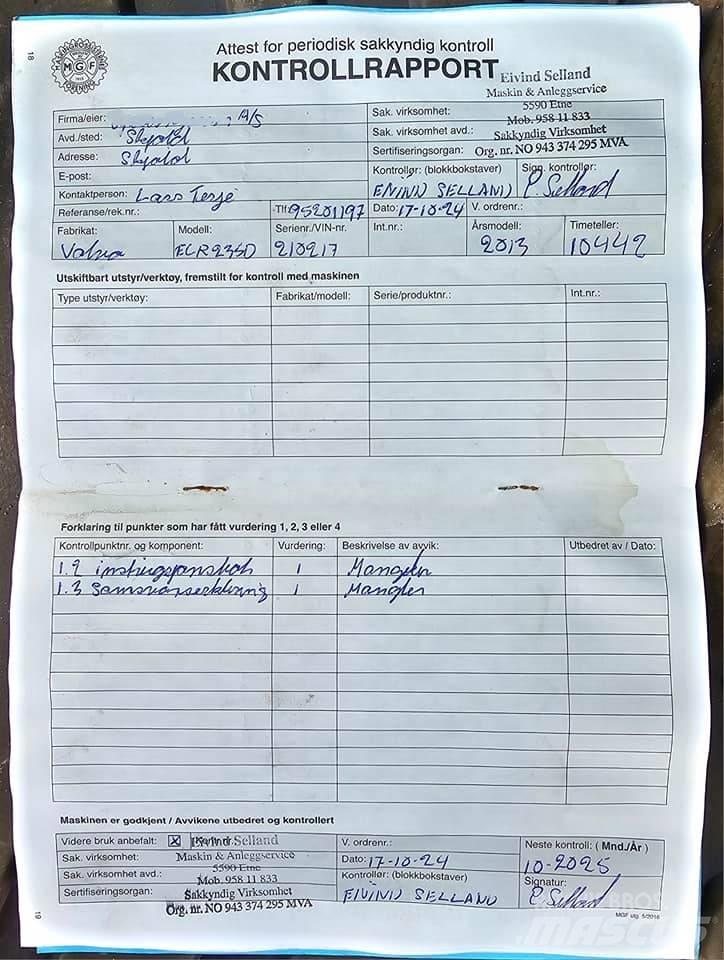 18
MASKINGROSSISTENES FORENING
MGF
Attest for periodisk sakkyndig kontroll
KONTROLLRAPPORT
Eivind Selland
Maskin & Anleggservice
5590 Etne
Mob. 958 11 833
Sakkyndig Virksomhet
Org. nr. NO 943 374 295 MVA
Firma/eier: A/S
Sak. virksomhet:
Avd./sted: Skjold
Sak. virksomhet avd.:
Adresse: Skjold
Sertifiseringsorgan:
E-post:
Kontrollør: (blokkbokstaver) EIVIND SELLAND
Sign. kontrollør: E. Selland
Kontaktperson: Lars Terje
Referanse/rek.nr.:
Tlf: 95201197
Dato: 17-10-24
V. ordrenr.:
Fabrikat: Volvo
Modell: ECR235D
Serienr./VIN-nr. 210217
Int.nr.:
Årsmodell: 2013
Timeteller: 10442
Utskiftbart utstyr/verktøy, fremstilt for kontroll med maskinen
Type utstyr/verktøy:
Fabrikat/modell:
Serie/produktnr.:
Int.nr.:
Forklaring til punkter som har fått vurdering 1, 2, 3 eller 4
Kontrollpunktnr. og komponent:
Vurdering:
Beskrivelse av avvik:
Utbedret av / Dato:
1.2 1 Mangler
1.3 Samsvarserklæring 1 Mangler
Maskinen er godkjent / Avvikene utbedret og kontrollert
Videre bruk anbefalt: X
Eivind Selland
Maskin & Anleggservice
5590 Etne
Mob. 958 11 833
Sakkyndig Virksomhet
Org. nr. NO 943 374 295 MVA
V. ordrenr.:
Neste kontroll: ( Mnd./År )
Sak. virksomhet:
Dato: 17-10-24
10-2025
Sak. virksomhet avd.:
Kontrollør: (blokkbokstaver)
Signatur:
Sertifiseringsorgan:
EIVIND SELLAND
E. Selland
19
MGF utg. 5/2016
MASCUS